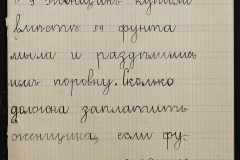 женщины купили
вместе фунта
мыла и разделили
его поровну. Сколько
должна заплатить
женщина, если фу-